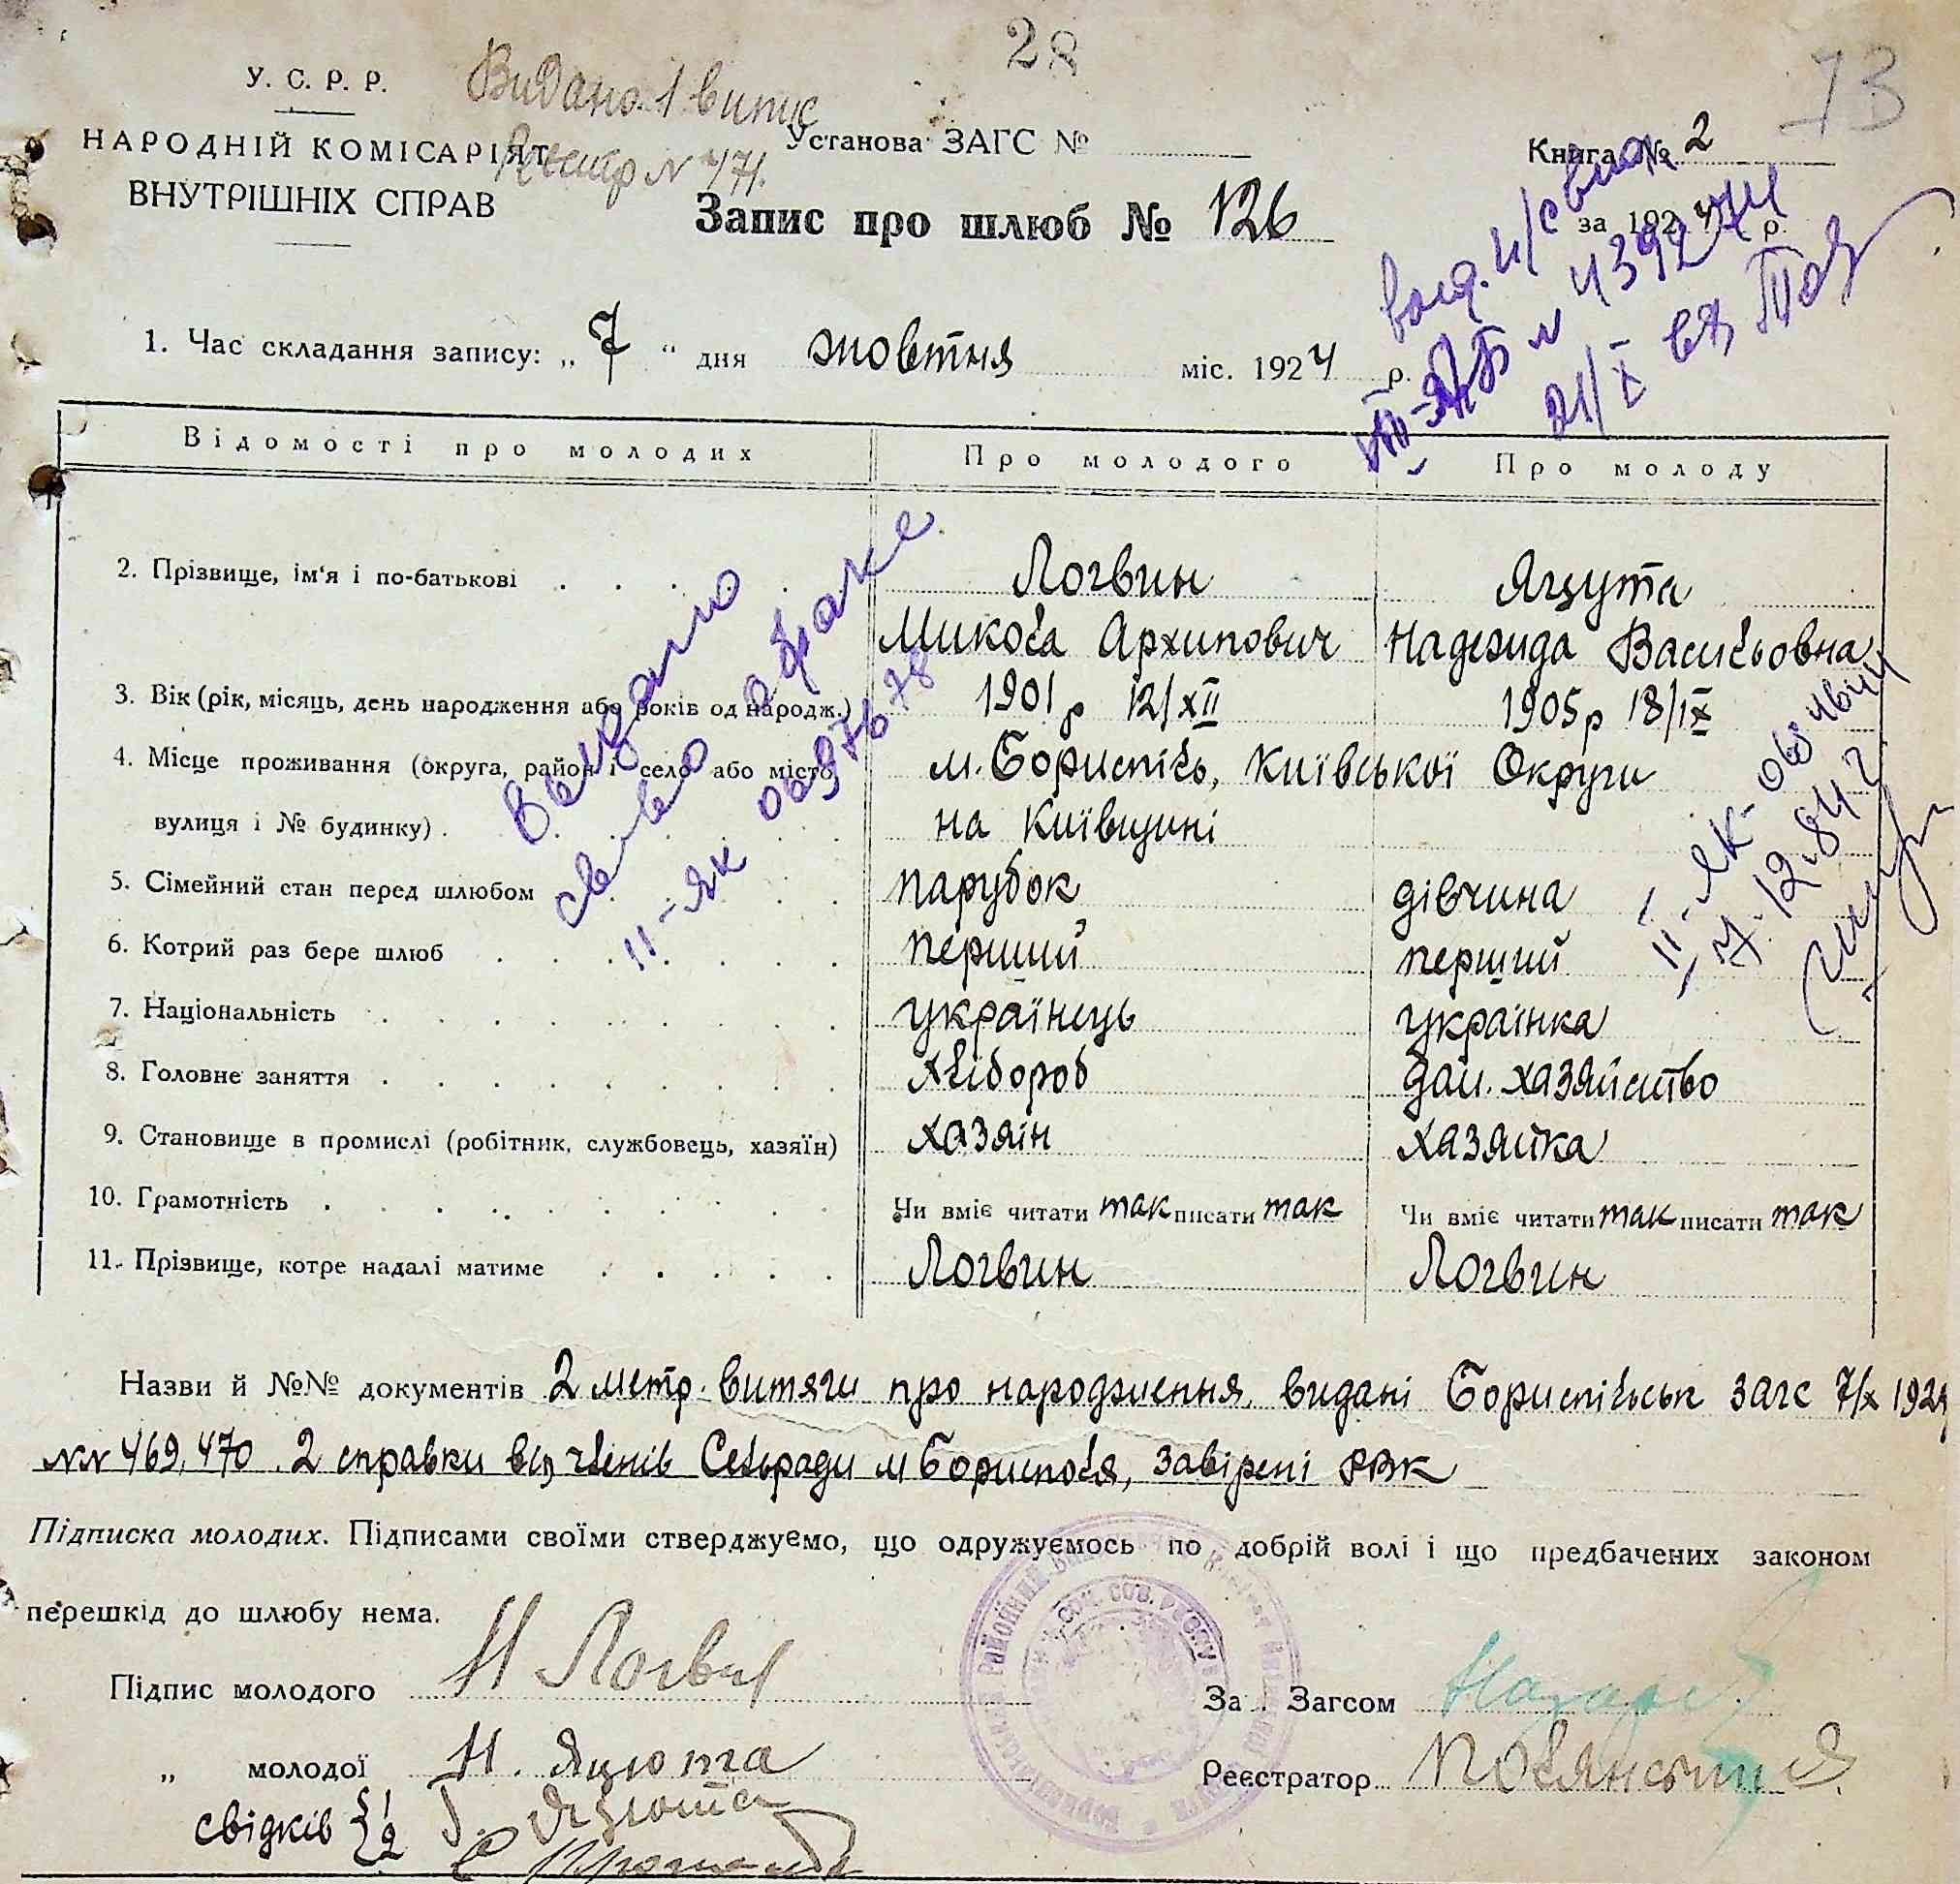 28
73
У. С. Р. Р.
Видано 1 випис
НАРОДНІЙ КОМІСАРІЯТ
ВНУТРІШНІХ СПРАВ
Установа ЗАГС №
Книга № 2
за 1924 р.
Запис про шлюб № 126
1. Час складання запису: „ 7 “ дня жовтня міс. 1924 р.
21/X
Відомості про молодих Про молодого Про молоду
2. Прізвище, ім'я і по-батькові Логвин Яцута
Микола Архипович Надежида Васильовна
3. Вік (рік, місяць, день народження або років од народж.) 1901 р 12/XII 1905 р 18/IX
4. Місце проживання (округа, район і село або місто, м. Бориспіль, Київської Округи
вулиця і № будинку) на Київщині
5. Сімейний стан перед шлюбом парубок дівчина
6. Котрий раз бере шлюб перший перший
7. Національність українець українка
8. Головне заняття хлібороб дом. хазяйство
9. Становище в промислі (робітник, службовець, хазяїн) хазяін хазяйка
10. Грамотність Чи вміє читати так писати так Чи вміє читати так писати так
11. Прізвище, котре надалі матиме Логвин Логвин
Видано
свід-во о браке
II-ЯК 0697678
II-ЯК-
7.12.84 г
Назви й №№ документів 2 метр. витяги про народження, видані Бориспільськ ЗАГС 7/X 1924
NN 469, 470. 2 справки від членів Сельради м Борисполя, завірені РВК
Підписка молодих. Підписами своїми стверджуємо, що одружуємось по добрій волі і що предбачених законом
перешкід до шлюбу нема.
Підпис молодого Н Логвин
За Загсом
„ молодої Н. Яцюта
Реєстратор
свідків { 1 Г. Яцюта
2